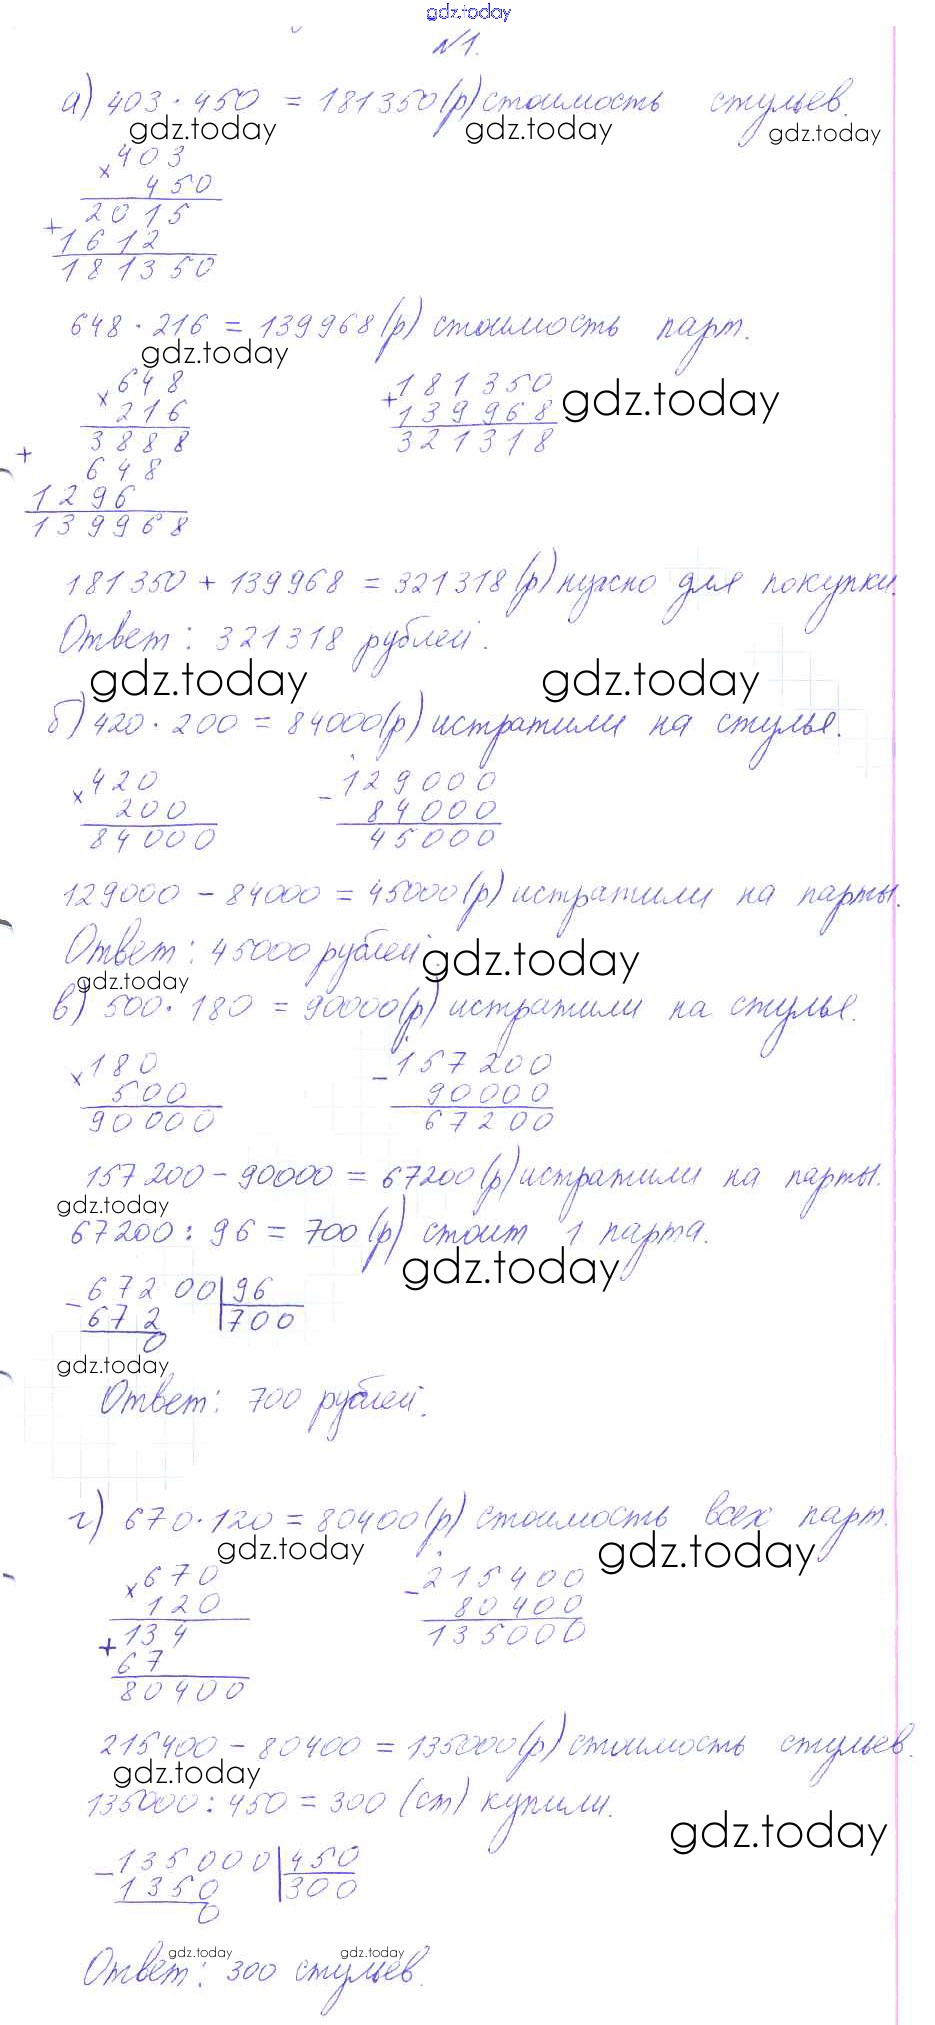 gdz.today
№1.
а) 403 · 450 = 181350 (р) стоимость стульев.
gdz.today gdz.today gdz.today
× 403
450
+ 2015
1612
181350
648 · 216 = 139968 (р) стоимость парт.
gdz.today
× 648
216
+ 3888
648
1296
139968
+ 181350
139968
321318
gdz.today
181350 + 139968 = 321318 (р) нужно для покупки.
Ответ: 321318 рублей.
gdz.today gdz.today
б) 420 · 200 = 84000 (р) истратили на стулья.
× 420
200
84000
- 129000
84000
45000
129000 - 84000 = 45000 (р) истратили на парты.
Ответ: 45000 рублей.
gdz.today gdz.today
в) 500 · 180 = 90000 (р) истратили на стулья.
× 180
500
90000
- 157200
90000
67200
157200 - 90000 = 67200 (р) истратили на парты.
gdz.today
67200 : 96 = 700 (р) стоит 1 парта.
gdz.today
- 67200 | 96
672 | 700
0
gdz.today
Ответ: 700 рублей.
г) 670 · 120 = 80400 (р) стоимость всех парт.
gdz.today gdz.today
× 670
120
+ 134
67
80400
- 215400
80400
135000
215400 - 80400 = 135000 (р) стоимость стульев.
gdz.today
135000 : 450 = 300 (ст) купили.
gdz.today
- 135000 | 450
1350 | 300
0
gdz.today gdz.today
Ответ: 300 стульев.